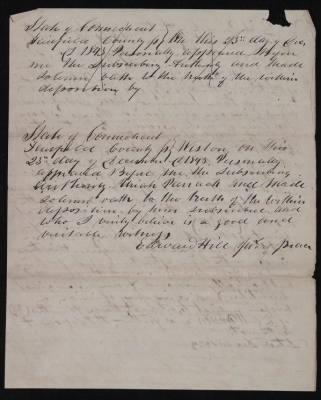 State of Connecticut
Fairfield County ss. On this 25th day of Dec
1843 Personally appeared before
me the Subscribing Authority and made
solemn oath to the truth of the within
deposition by
State of Connecticut
Fairfield County ss. Weston on this
25th day of December 1843. Personally
appeared Before me the Subscribing
Authority and made
solemn oath to the truth of the within
deposition by him subscribed and
who I verily believe is a good and
veritable witness
Edward Hill Peace